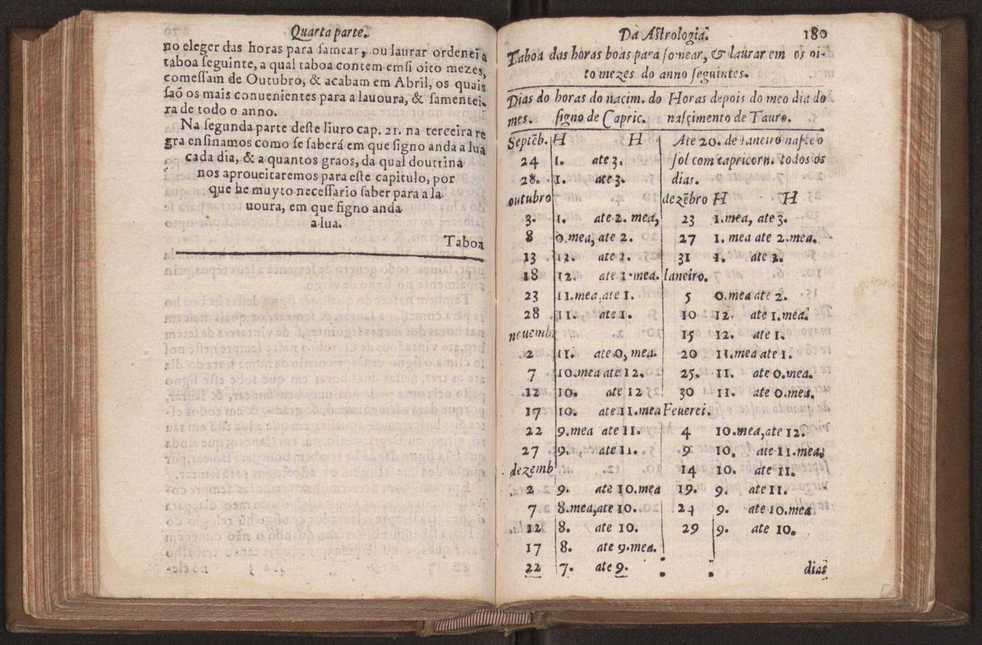 Quarta parte.
no eleger das horas para samear, ou laurar ordenei a
taboa seguinte, a qual taboa contem emsi oito mezes,
comessam de Outubro, & acabam em Abril, os quais
saõ os mais conuenientes para a lauoura, & samentei-
ra de todo o anno.
Na segunda parte deste liuro cap. 21. na terceira re
gra ensinamos como se saberá em que signo anda a lua
cada dia, & a quantos graos, da qual douttrina
nos aproueitaremos para este capitulo, por
que he muyto necessario saber para a la
uoura, em que signo anda
a lua.
Taboa
Da Astrologia. 180
Taboa das horas boas para somear, & laurar em os oi-
to mezes do anno seguintes.
Dias do horas do nacim. do Horas depois do meo dia do
mes. signo de Capric. nasçimento de Tauro.
Septẽb. H H
24 1. ate 3.
28. 1. ate 3.
outubro
3. 1. ate 2. mea,
8 0.mea, ate 2.
13 12. ate 2.
18 12. ate 1.mea.
23 11.mea,ate 1.
28 11. ate 1.
nouemb.
2 11. ate 0, mea.
7 10.mea ate 12.
12 10. ate 12
17 10. ate 11.mea
22 9.mea ate 11.
27 9. ate 11.
dezemb
2 9. ate 10.mea
7 8.mea,ate 10.
12 8. ate 10.
17 8. ate 9.mea.
22 7. ate 9.
Ate 20. de Ianeiro nasce o
sol com capricorn. todos os
dias.
dezẽbro H H
23 1.mea, ate 3.
27 1. mea ate 2.mea.
31 1. ate 2.
Ianeiro.
5 0.mea ate 2.
10 12. ate 1.mea.
15 12. ate 1.
20 11.mea ate 1.
25. 11. ate 0.mea.
30 11. ate 0.mea.
Feuerei.
4 10.mea,ate 12.
9 10. ate 11.mea;
14 10. ate 11.
19. 9. ate 11.
24 9. ate 10.mea
29 9. ate 10.
dias